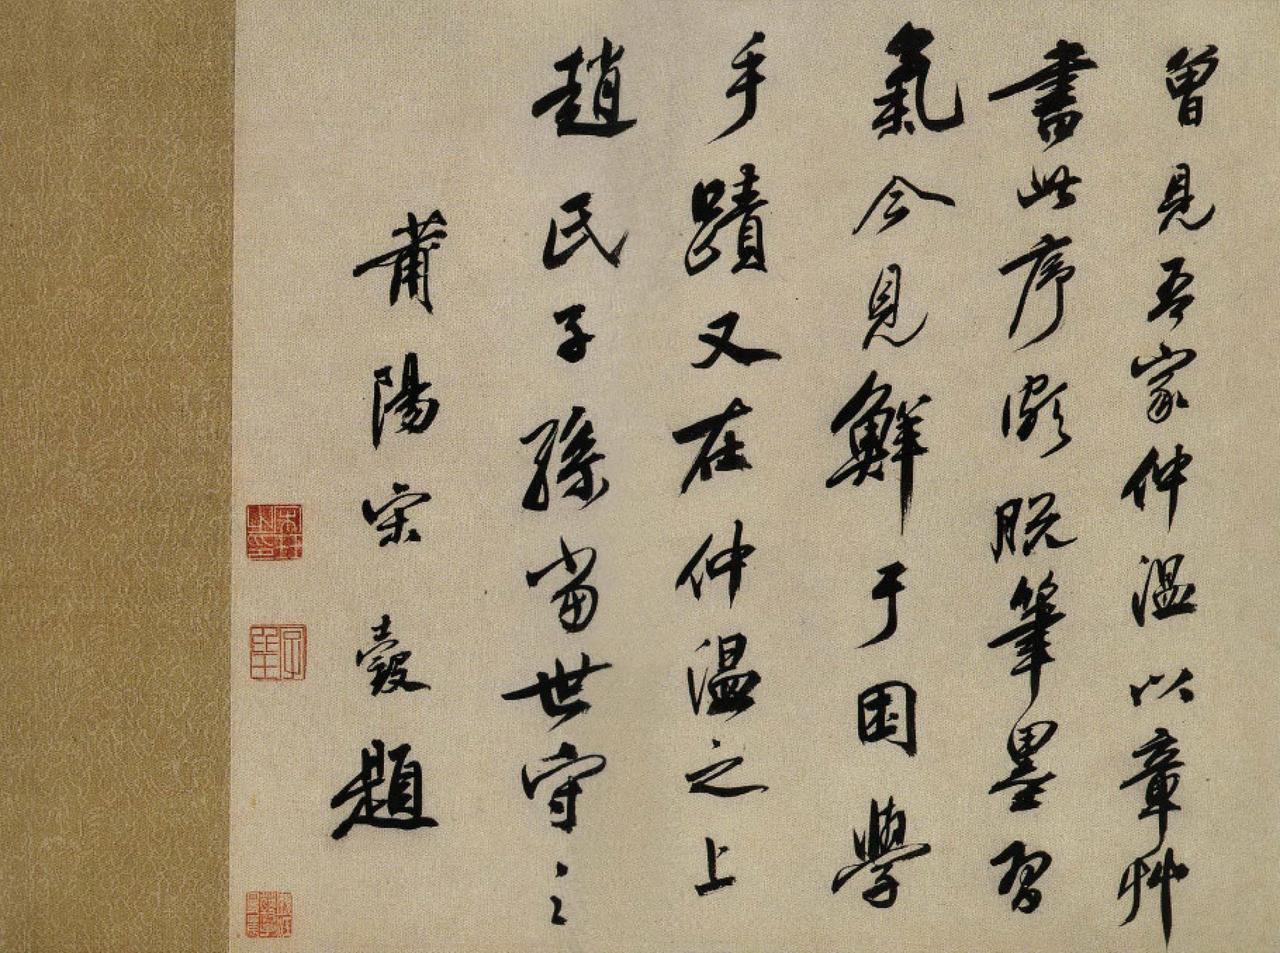 曾見吾家仲温以章艸
書此序頗脱筆墨習
氣今見鮮于困學
手蹟又在仲温之上
趙氏子孫當世守之
莆陽宋瑴題